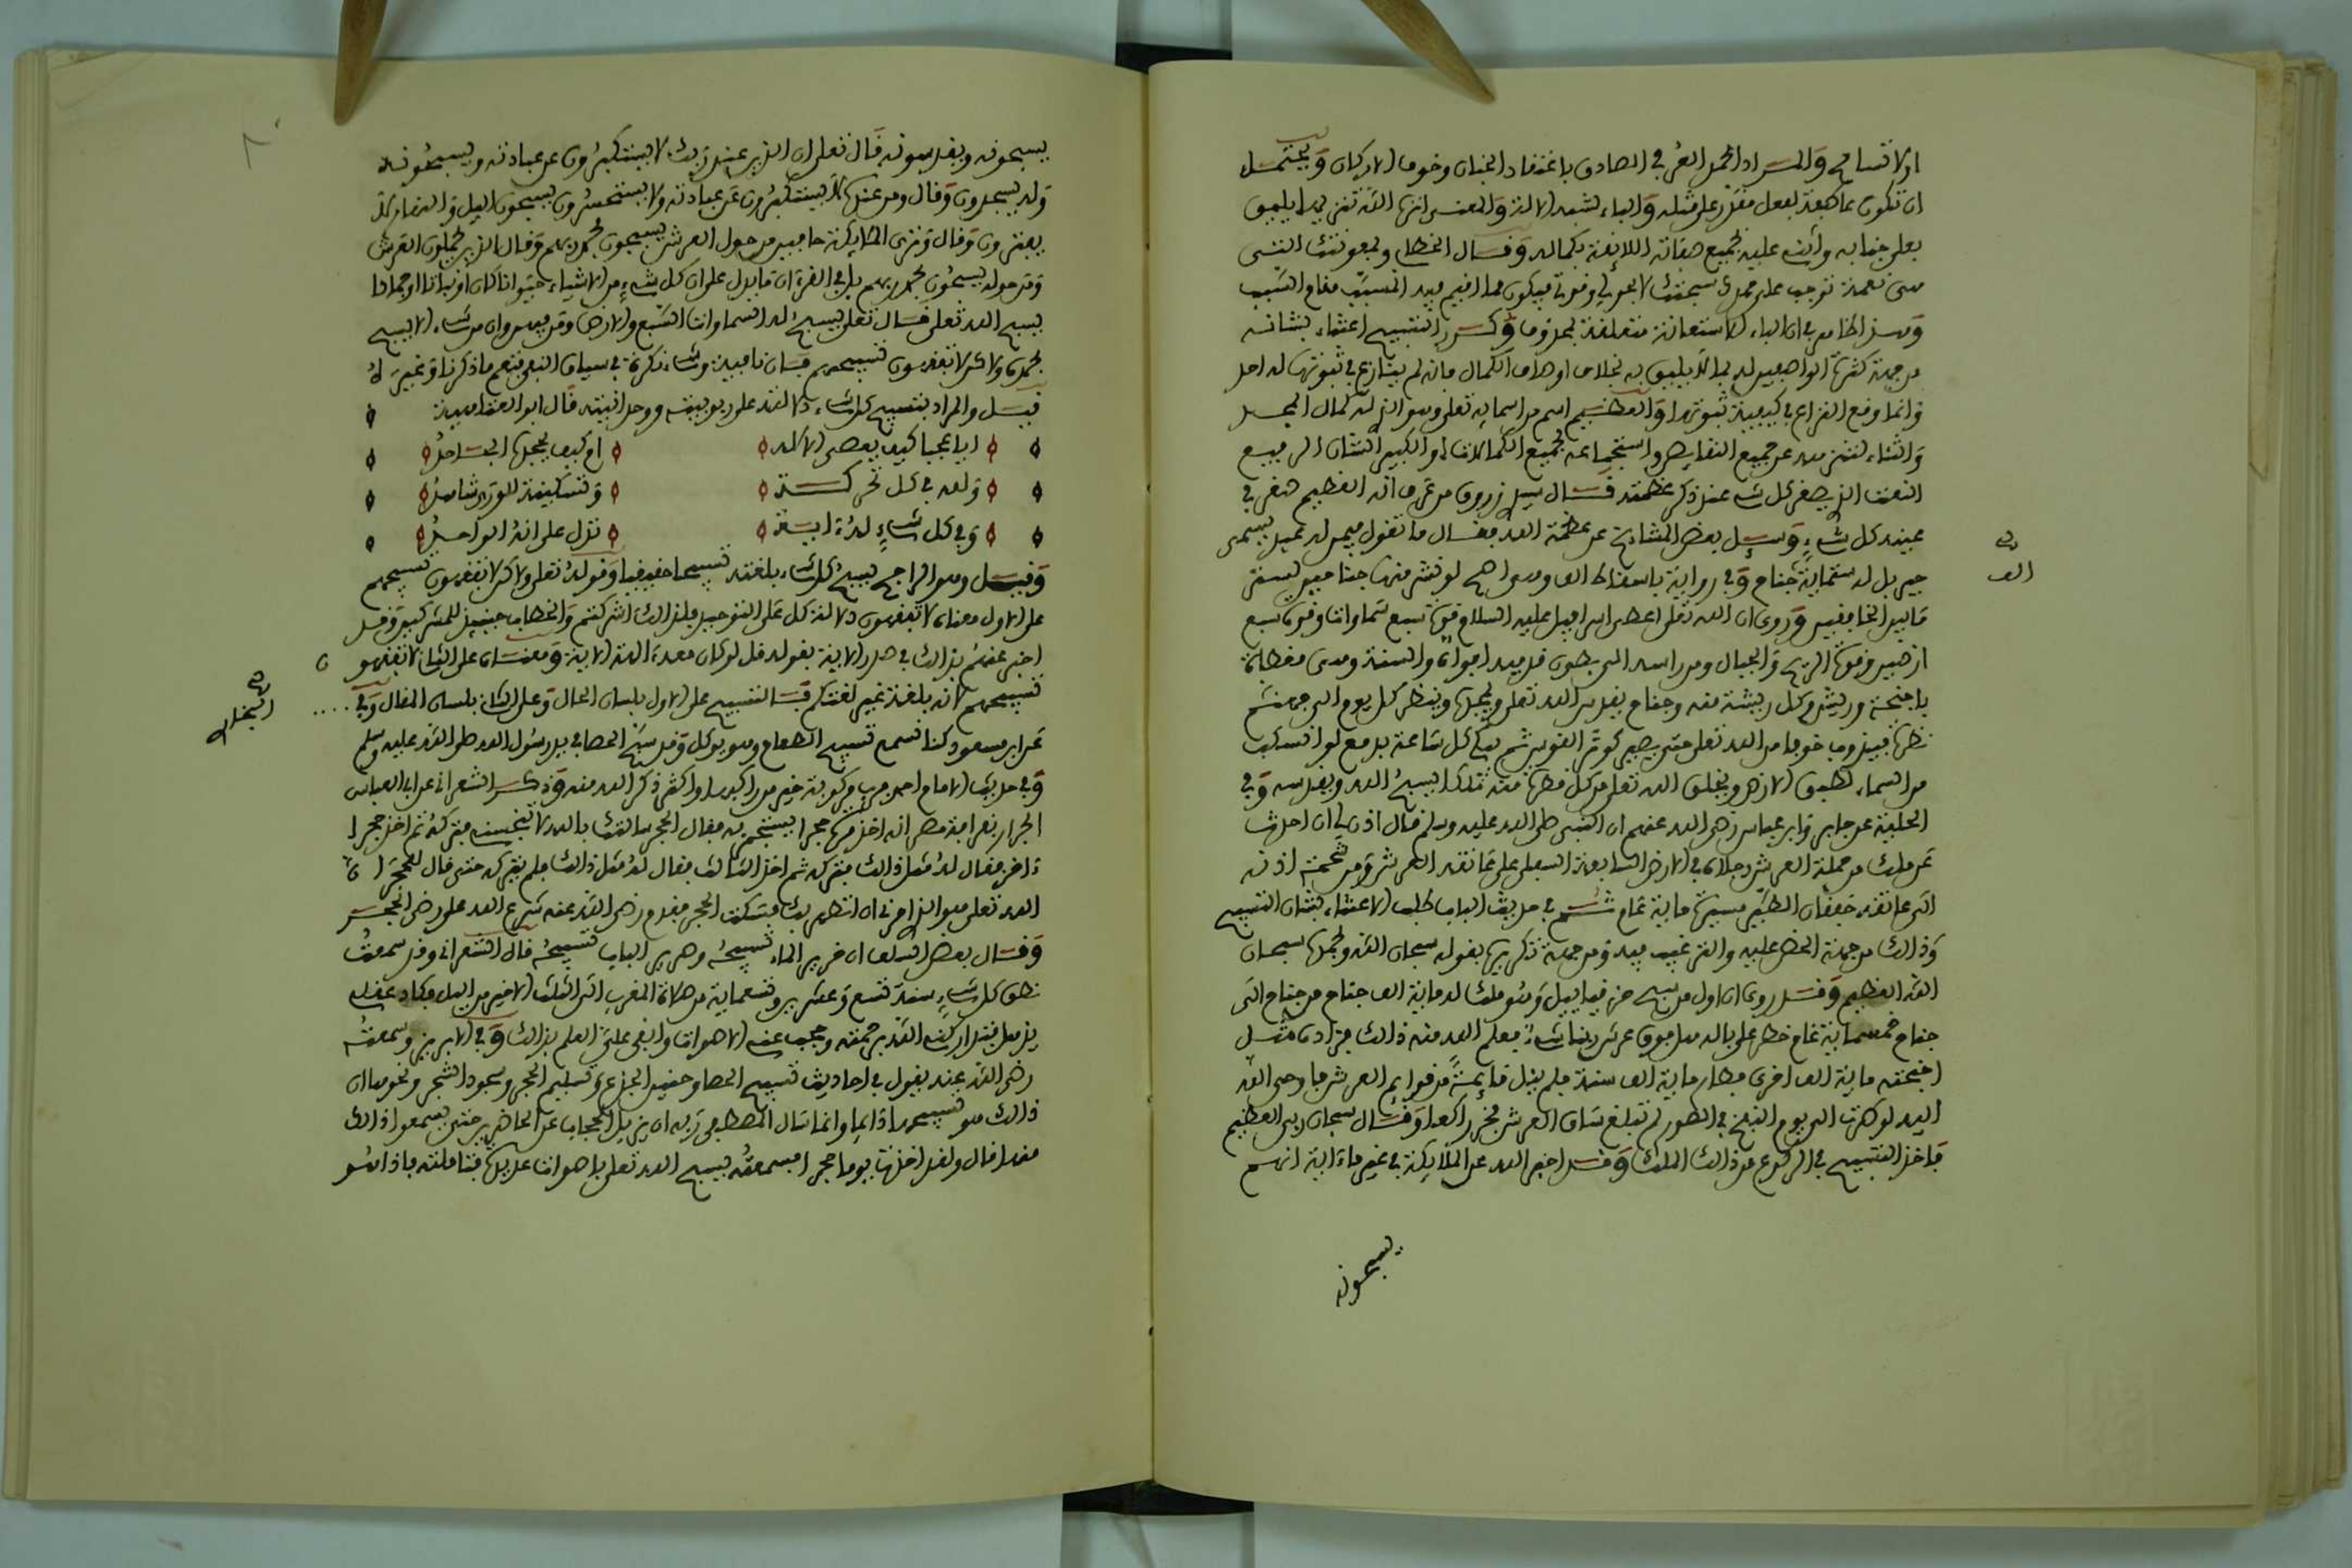 او لا تسامح والمراد الحمل العرفي الصادق باعتقاد الجنان وخوف الاركان ويحتمل
ان تكون عاطفة لفعل مقدر على مثله والباء لشبه الالة والمعنى انزه الله تنزيها يليق
بعلي جنابه واثني عليه بجميع صفاته اللائقة بكماله وقال الخطابي وبمعونتك التي
هي نعمة توجب علي حمدك سبحتك لا بحولي وقوتي فيكون مما اقيم فيه المسبب مقام السبب
في ان الباء للاستعانة متعلقة بمحذوف وكرر التسبيح اعتناء بشانه
من جهة كثرة الواصفين له بما لا يليق به بخلاف اوصاف الكمال فانه لم ينازع في ثبوتها له احد
وانما وقع النزاع في كيفية ثبوتها والعظيم اسم من اسمائه تعلى وهو الذي له كمال المجد
والثناء لتنزهه عن جميع النقايص واستجماعه لجميع الكمالات او الكبير الشان الرفيع
النعت الذي يصغر كل شيء عند ذكر عظمته قال سيدي زروق من عرف انه العظيم صغر في
عينه كل شيء وسئل بعض المشايخ عن عظمة الله فقال ما تقول فيمن له عبد يسمى
جبريل له ستمائة جناح وفي رواية باسقاط الف وهي اصح لو نشر منها جناحين لستر
ما بين الخافقين وروي ان الله تعلى اعطى اسرافيل عليه السلام قوة سبع سماوات وقوة سبع
ارضين وقوة الريح والجبال ومن راسه الى بطون قدميه افواه والسنة وهي مغطاة
باجنحة وريش وكل ريشة فم وجناح يقدس الله تعلى ويمجده وينظر كل يوم الى جهنم
نظرة فيذوب خوفا من الله تعلى حتى يصير كوتر القوس ثم يبكي كل ساعة بدمع لو انسكب
من السماء لطبق الارض ويخلق الله تعلى من كل قطرة منه ملكا يسبح الله ويقدسه وفي
الحلية عن جابر وابن عباس رضي الله عنهم ان النبي صلى الله عليه وسلم قال اذن لي ان احدث
عن ملك من حملة العرش رجلاه في الارض السابعة السفلى على عاتقه العرش ومن شحمة اذنه
الى عاتقه خفقان الطير مسيرة مائة عام في حديث الباب طلب الاعتناء بشان التسبيح
وذلك من جهة الحض عليه والترغيب فيه ومن جهة تكريره بقوله سبحان الله وبحمده سبحان
الله العظيم وقد روي ان اول من سبح حزقيائيل وهو ملك له مائة الف جناح من جناح الى
جناح خمسمائة عام خطر على باله هل فوق عرش ربنا شيء فعلم الله منه ذلك فزاده مثل
اجنحته مائة الف اخرى فطار مائة الف سنة فلم ينل قائمة من قوائم العرش فاوحى الله
اليه لو طرت الى يوم النفخ في الصور لم تبلغ ساق العرش فخر راكعا وقال سبحان ربي العظيم
فاخذ التسبيح في الركوع من ذلك الملك وقد اخبر الله عن الملائكة في غير ما ءاية انهم
يسبحونه
صح
الف
يسبحونه ويقدسونه قال تعلى ان الذين عند ربك لا يستكبرون عن عبادته ويسبحونه
وله يسجدون وقال ومن عنده لا يستكبرون عن عبادته ولا يستحسرون يسبحون اليل والنهار لا
يفترون وقال وترى الملائكة حافين من حول العرش يسبحون بحمد ربهم وقال الذين يحملون العرش
ومن حوله يسبحون بحمد ربهم بل في القرءان ما يدل على ان كل شيء من الاشياء حيوانا كان او نباتا او جمادا
يسبح الله تعلى قال تعلى يسبح له السماوات السبع والارض ومن فيهن وان من شيء الا يسبح
بحمده ولاكن لا تفقهون تسبيحهم فان نافية وشيء نكرة في سياق النفي فتعم ما ذكرنا وغيره
قيل والمراد بتسبيح كل شيء دلالته على ربوبيته ووحدانيته قال ابو العتاهية
ايا عجبا كيف يعصى الاله ام كيف يجحده الجاحد
ولله في كل تحركة وتسكينة للورى شاهد
وفي كل شيء له ءاية تدل على انه الواحد
وقيل وهو الراجح يسبح كل شيء بلغته تسبيحا حقيقيا وقوله تعلى ولاكن لا تفقهون تسبيحهم
على الاول معناه لا تفقهون دلالة كل على التوحيد فلذلك اشركتم والخطاب حينئذ للمشركين وقد
اخبر عنهم بذلك في صدر الاية بقوله قل لو كان معه ءالهة الاية ومعناه على الثاني لا تفقهون
تسبيحهم لانه بلغة غير لغتكم فالتسبيح على الاول بلسان الحال وعلى الثاني بلسان المقال وفي
صح
البخاري
عن ابن مسعود كنا نسمع تسبيح الطعام وهو يوكل وقد سبح الحصا في يد رسول الله صلى الله عليه وسلم
وفي حديث الامام احمد مركوبة خير من راكبها واكثر ذكرا لله منه وذكر الشعراني عن ابي العباس
الحرار بقرافة مصر انه اخذ مرة حجرا ليستجمر به فقال الحجر سالتك بالله لا تنجسني فتركه ثم اخذ حجرا
ءاخر فقال له مثل ذلك فتركه ثم اخذ الثالث فقال له مثل ذلك فلم يتركه حتى قال للحجر ان
الله تعلى هو الذي امرني ان اتطهر بك فسكت الحجر فقدم رضي الله عنه شرع الله على رضى الحجر
وقال بعض السلف ان خرير الماء تسبيحه وصرير الباب تسبيحه قال الشعراني وقد سمعت
نطق كل شيء سنة تسع وعشرين وتسعمائة من صلاة المغرب الى الثلث الاخير من اليل وكاد عقلي
يذهل فتداركني الله برحمته وحجب عني الاصوات وابقى علي العلم بذلك وفي الابريز وسمعته
رضي الله عنه يقول في احاديث تسبيح الحصا وحنين الجذع وتسليم الحجر وسجود الشجر ونحوها ان
ذلك هو تسبيحها دايما وانما سال المصطفى ربه ان يزيل الحجاب عن الحاضرين حتى يسمعوا ذلك
منها قال ولقد اخذت يوما حجرا فسمعته يسبح الله تعلى باصوات عديدة فتاملته فاذا هو